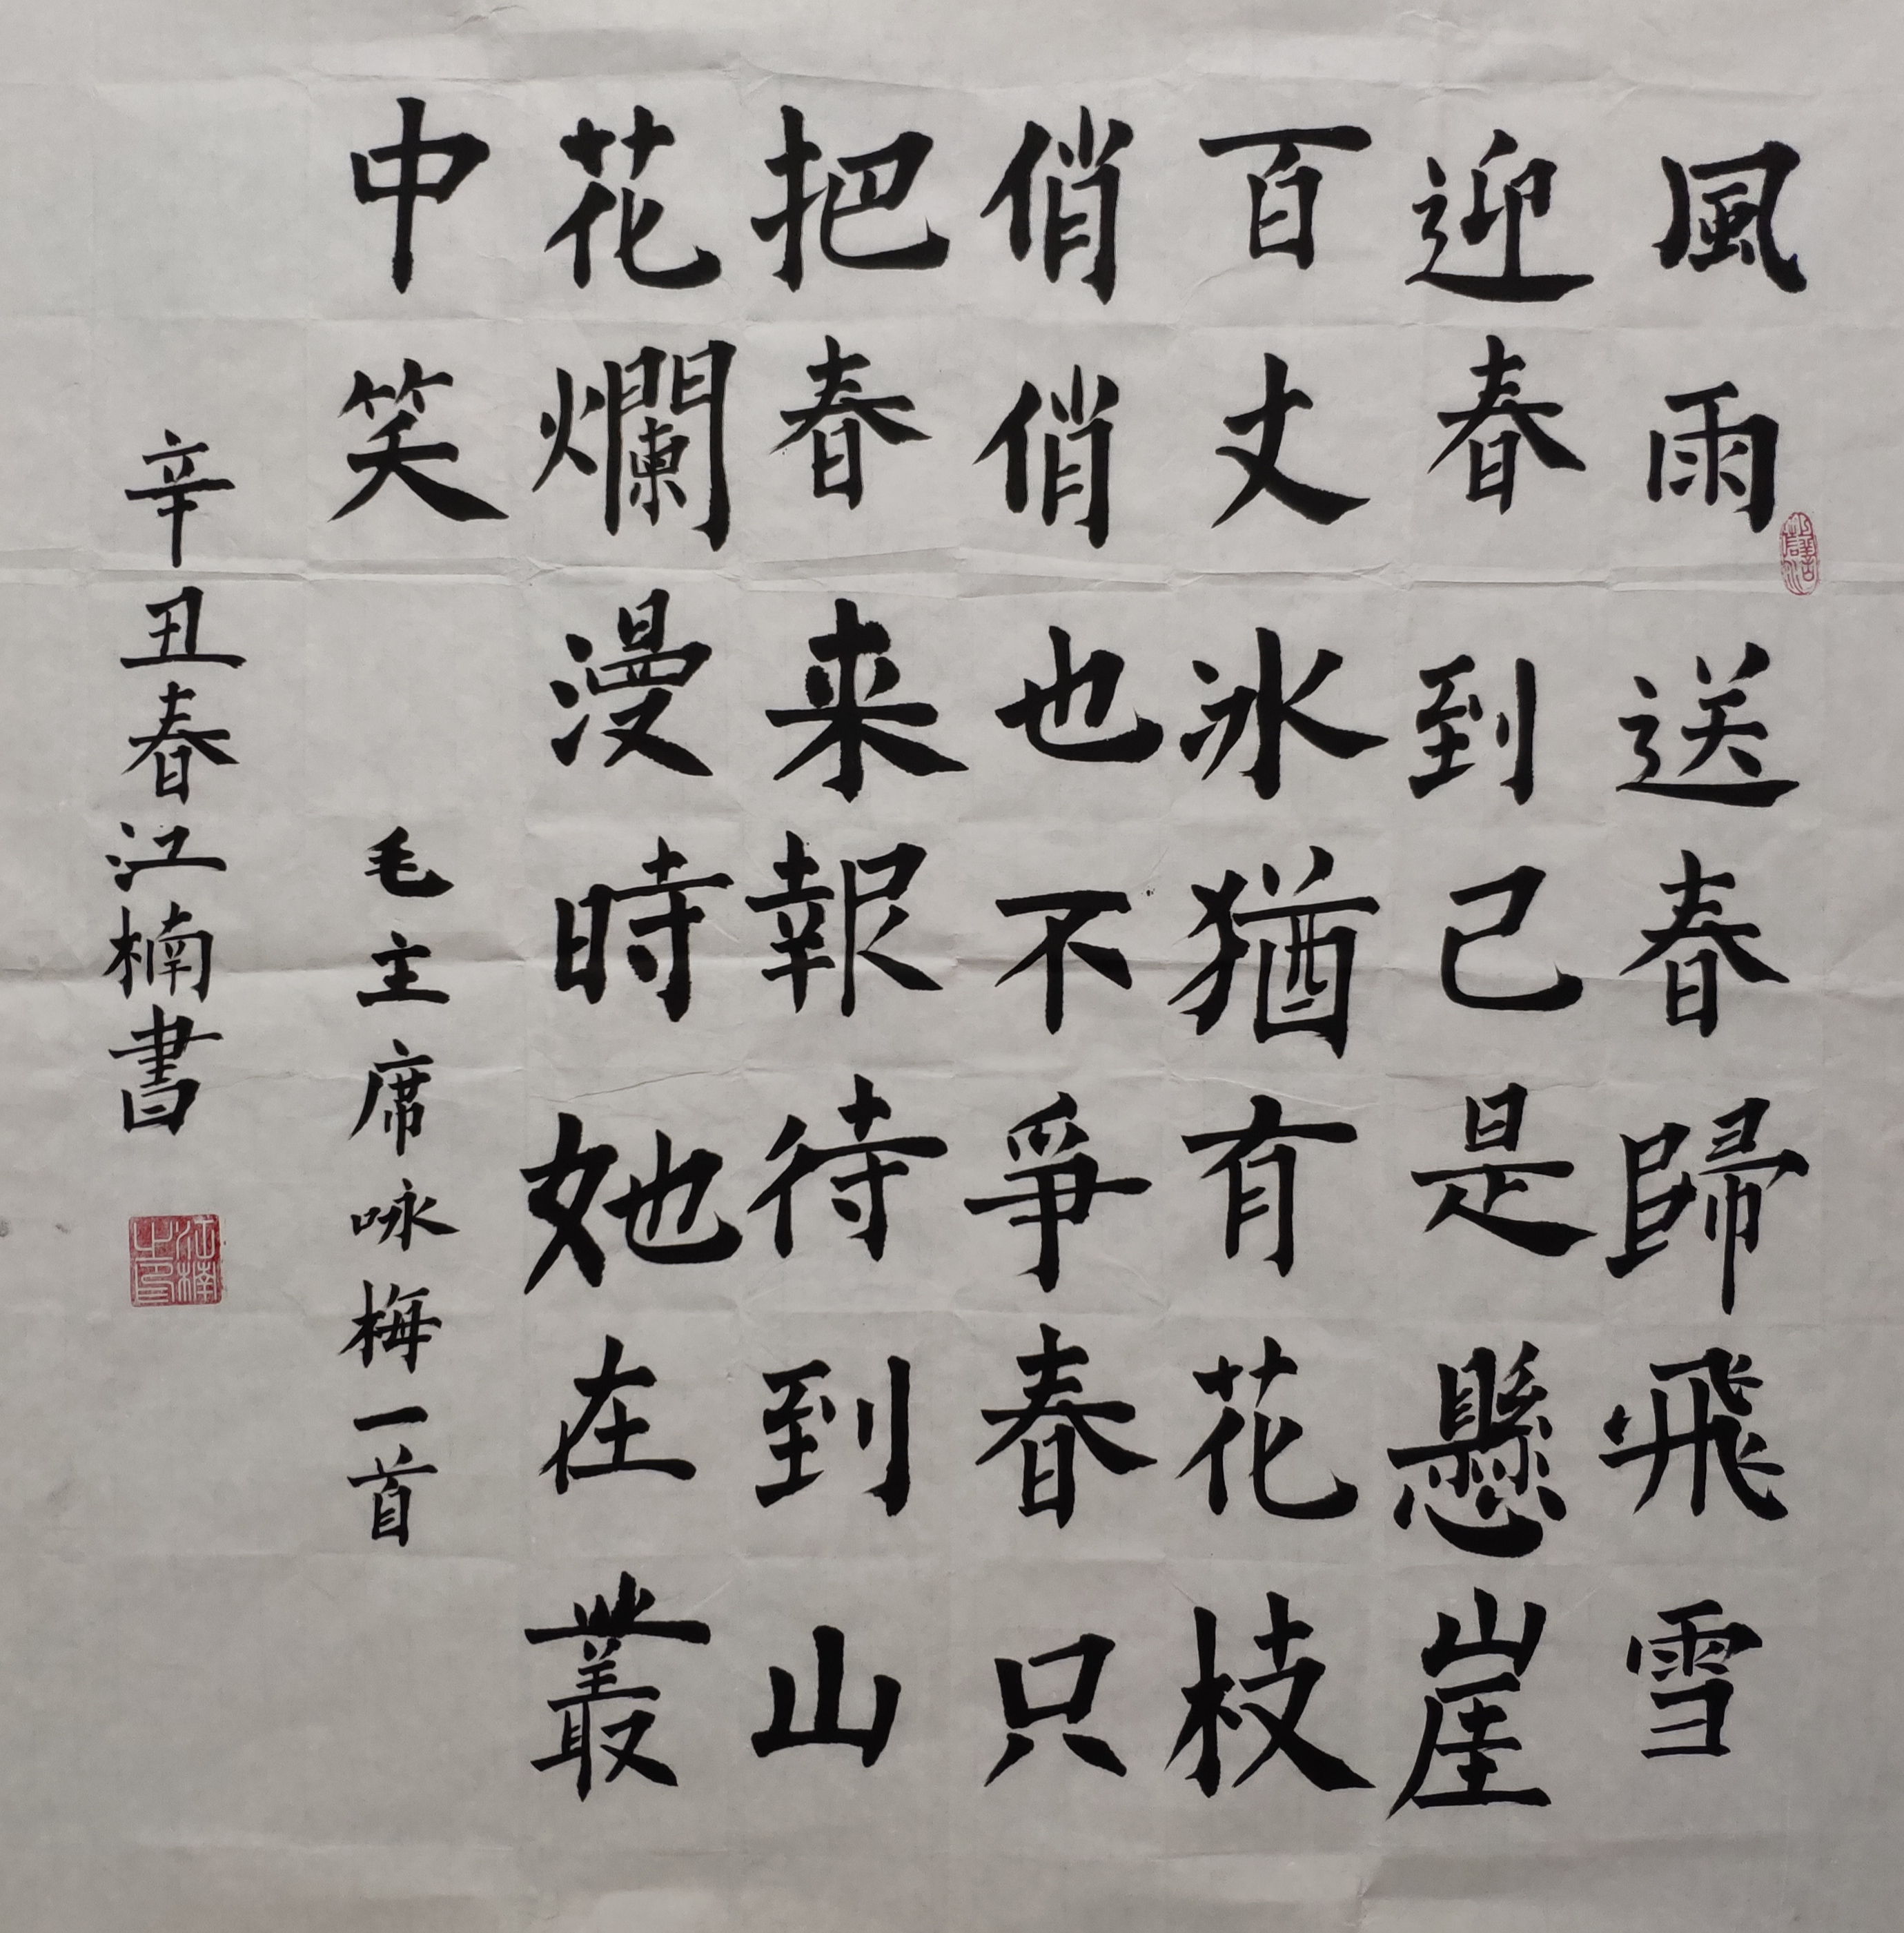 風雨送春歸飛雪
迎春到已是懸崖
百丈冰猶有花枝
俏俏也不爭春只
把春来報待到山
花爛漫時她在叢
中笑
毛主席咏梅一首
辛丑春江楠書
江楠之印